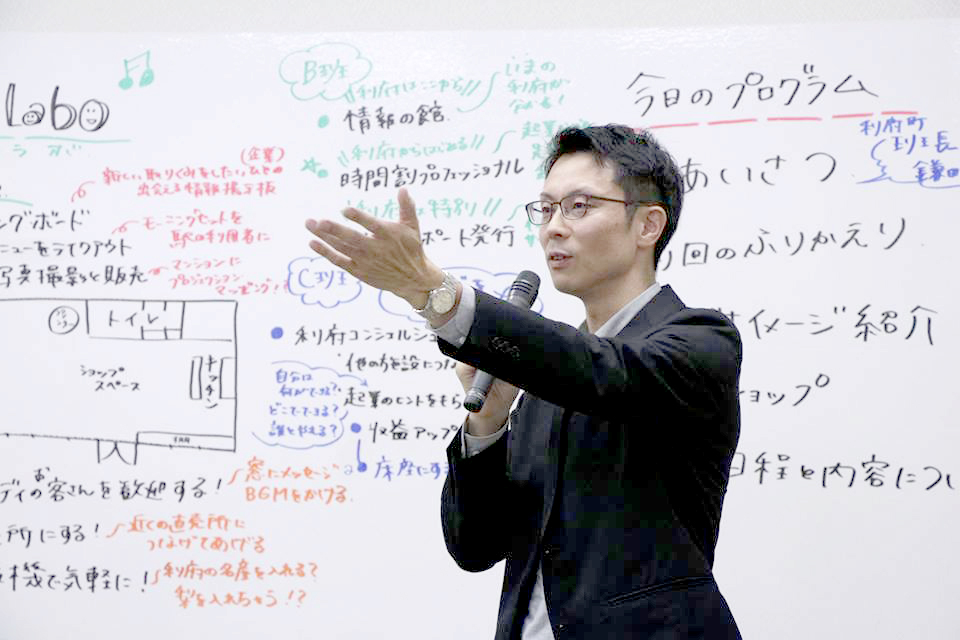 Labo
新しい取りくみをしたいひとの
(企業)
出会える情報掲示板
ングボード
モーニングセットを
駅の利用者に
ニューをテイクアウト
写真撮影と販売
マンションに
プロジェクション
マッピング!?
トイレ
ショップ
スペース
キッチン
お
ディの客さんを歓迎する!
窓にメッセージ
BGMをかける
所にする!
近くの直売所に
つなげてあげる
機で気軽に!
利府の名産を入れる?
梨を入れちゃう!?
B班
利府はここから
いまの
利府が
情報の館
利府からはじめる
時間割プロフェッショナル
特別
ポート発行
C班
利府コンシェルジュ
他の方を
自分は
何ができる?
どこでできる?
誰とやれる?
起業のヒントをもら
収益アップ
床座にす
今日のプログラム
利府町
班長
鎌田
あいさつ
回のふりかえり
イメージ紹介
ョップ
日程と内容につ